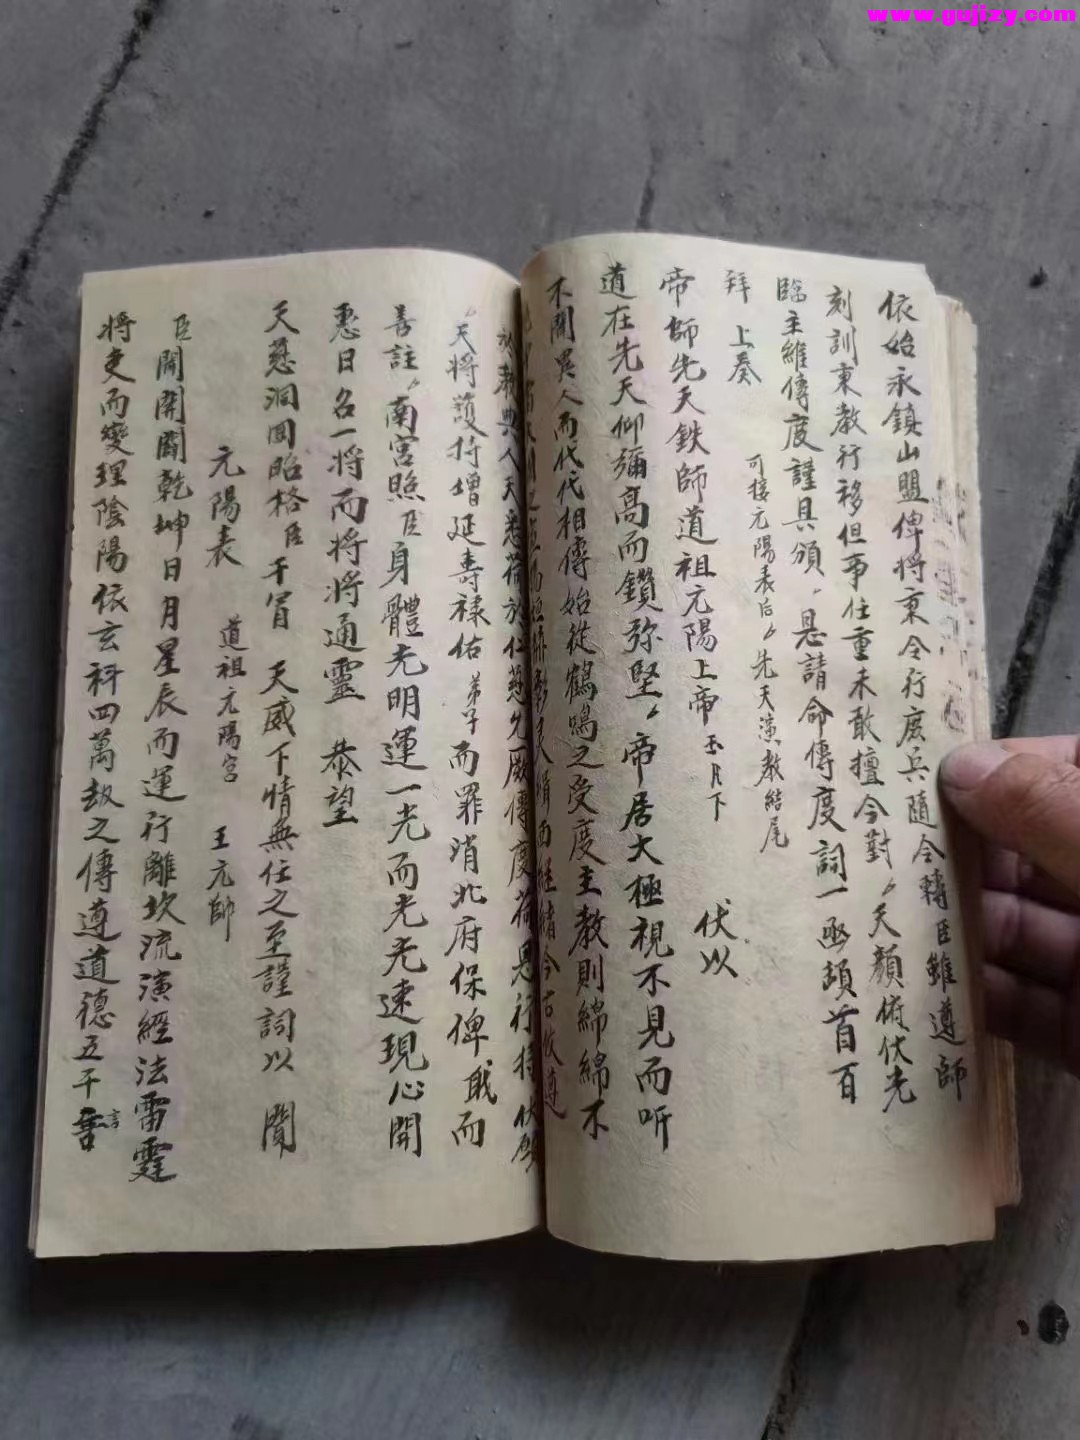 www.gujizy.com
依始永鎮山盟俾將東令行庻兵隨令轉臣雖遵師
刻訓東教行移但事任重未敢擅今對天顏俯伏光
臨主維傳度謹具頒恳請命傳度詞一函頓首百
拜上奏 可接元陽表后先天演教結尾
伏以
帝師先天鉄師道祖元陽上帝玉月下
道在先天仰彌高而鑽弥堅帝居大極視不見而听
不聞異人而代代相傳始從鶴鳴之受度主教則綿綿不
於教典人天悉荷於仁慈允厥傳度荷恩行持伏願
天將護持增延壽禄佑弟子而罪消北府保俾戢而
善註南宮照臣身體光明運一光而光光速現心開
惠日名一將而將將通靈 恭望
天慈洞回昭格臣干冒 天威下情無任之至謹詞以 聞
元陽表 道祖元陽宮 王元帥
臣聞開闢乾坤日月星辰而運行離坎流演經法雷霆
將吏而變理陰陽依玄科四萬劫之傳遵道德五千言